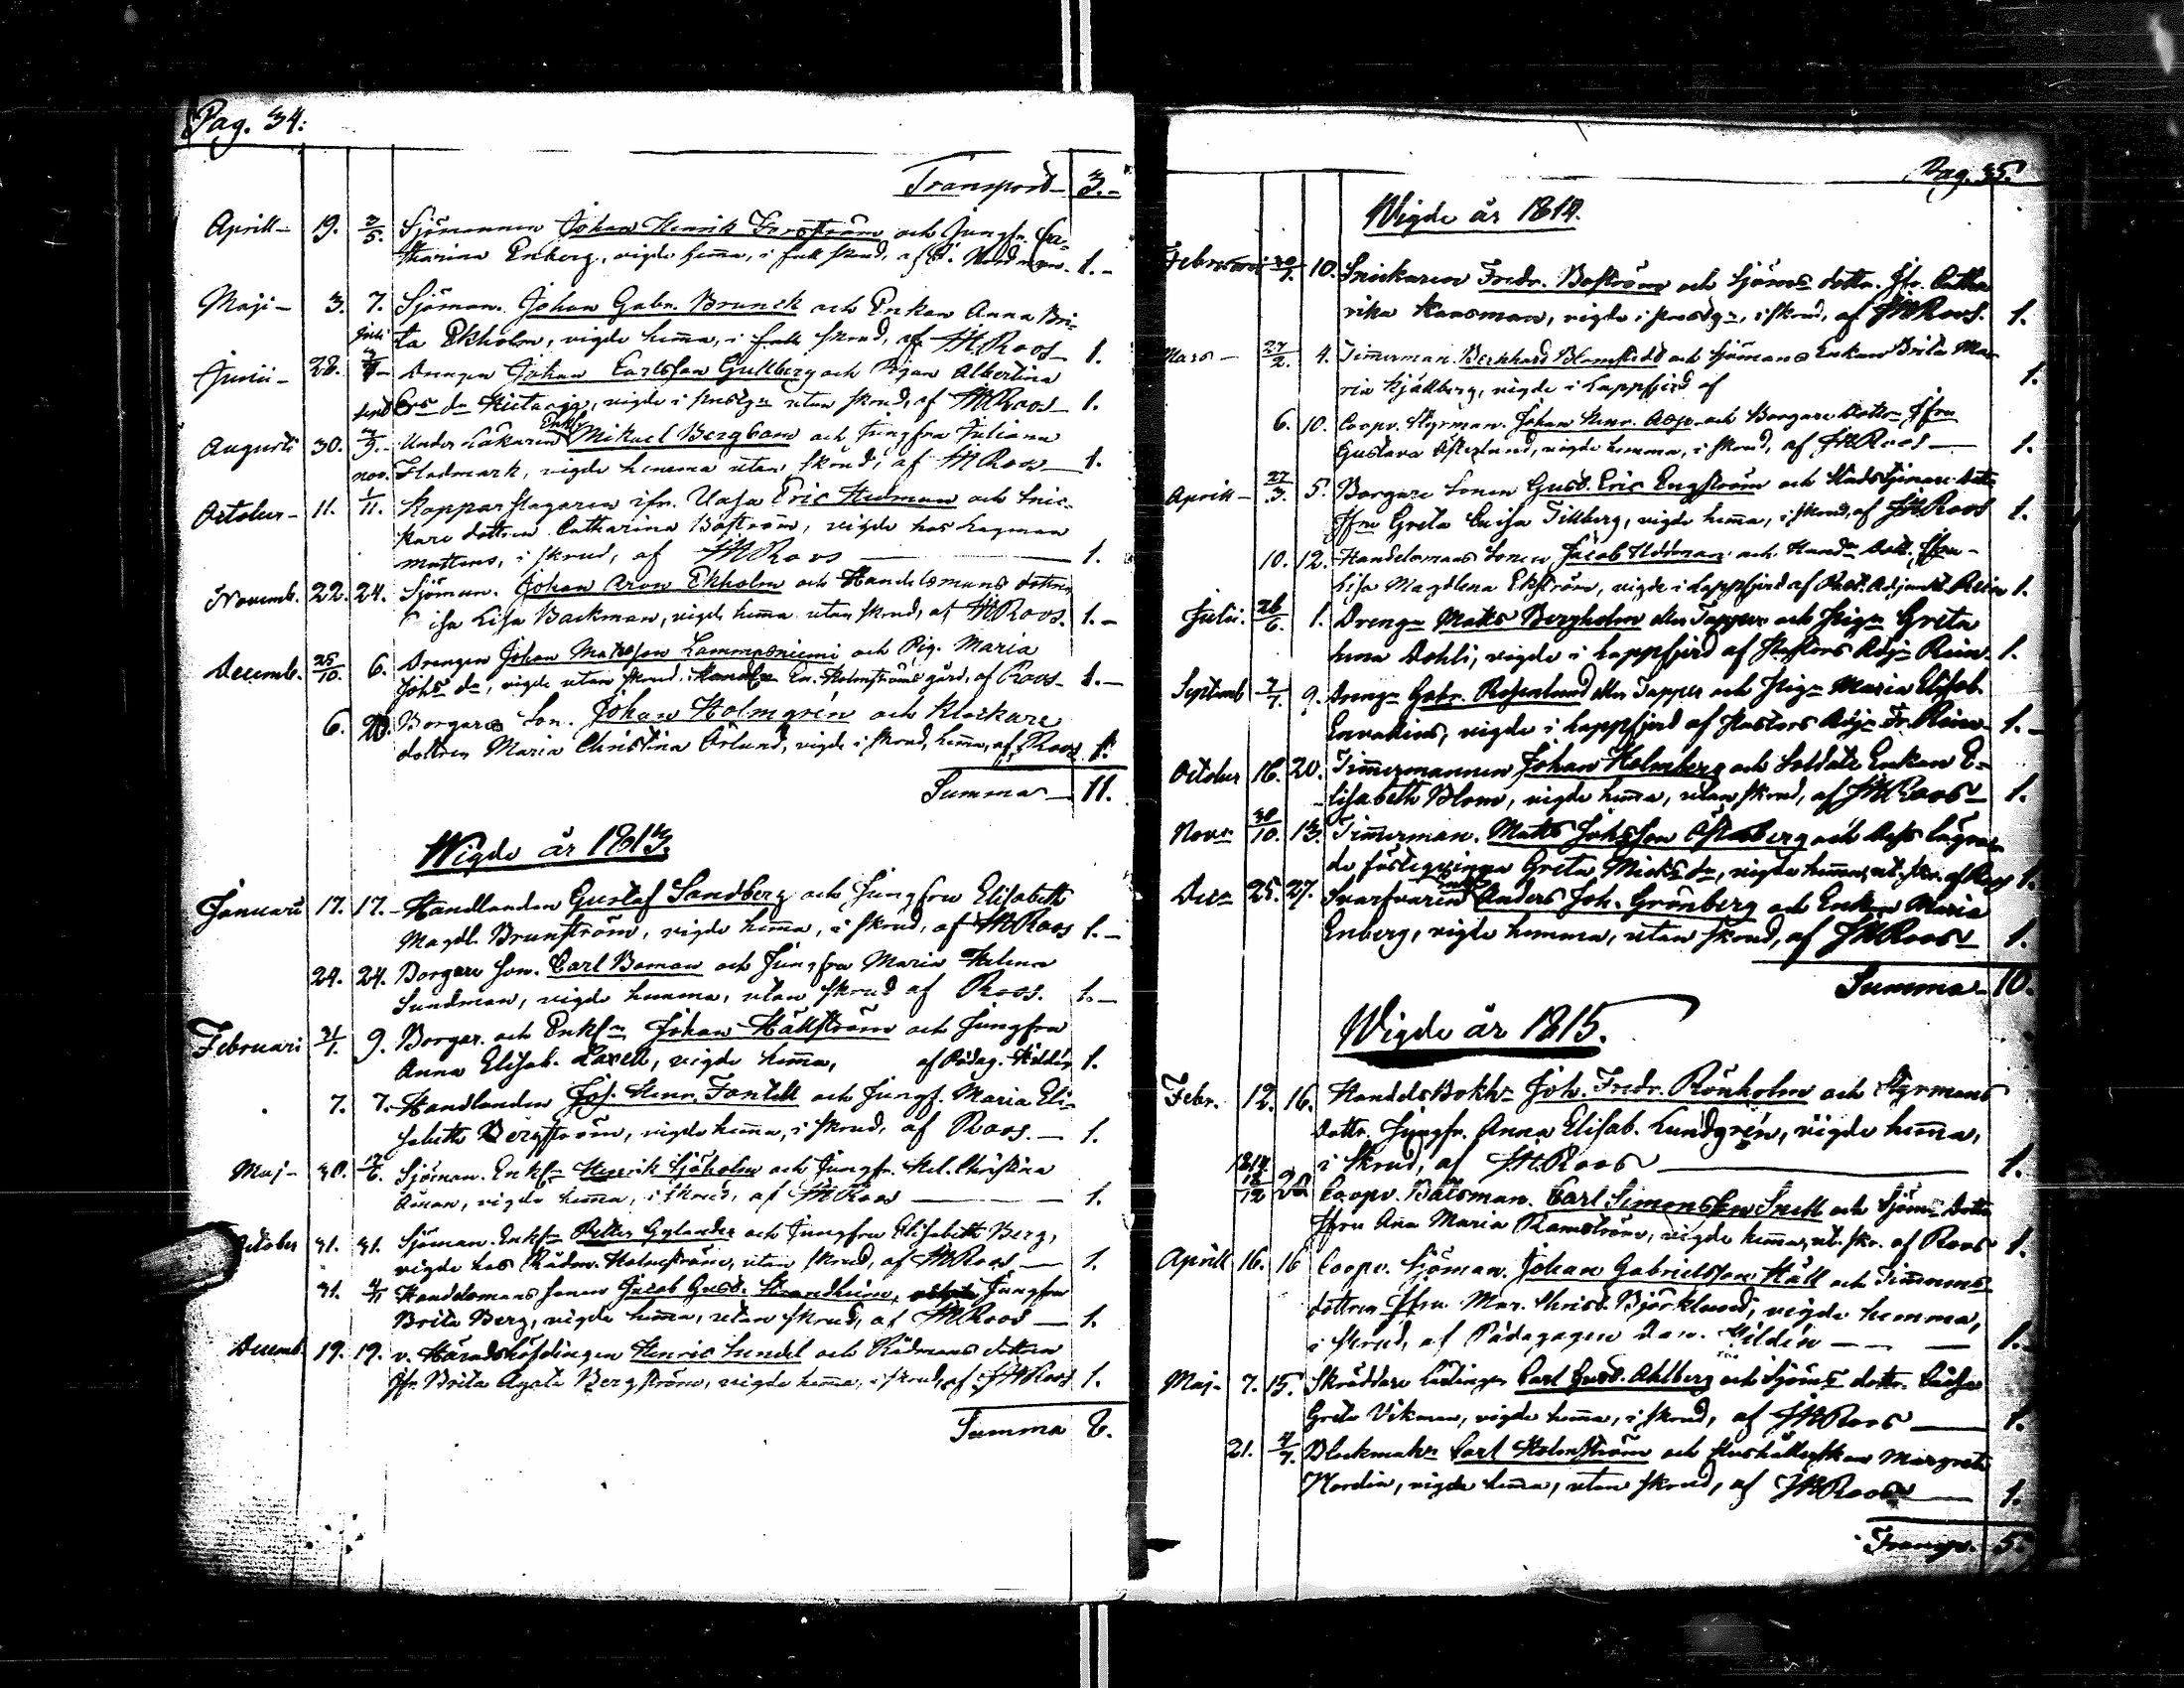 Pag. 34:
Transport 3.-
Aprill- 19. 2/5. Sjömannen Johan Henrik Forsström och Jungfr. Ca-
tharina Enberg, vigde hem̃a, i full skrud, af 1.-
Maji- 3. 7. Sjöman. Johan Gabr. Brunck och Enkan Anna Bri-
ta Ekholm, vigde hem̃a, i full skrud, af JHRoos- 1.
Junii- 28. Juli Drengen Johan Carlsson Gullberg och Pigan Albertina
Ers dr vigde i utan skrud, af JHRoos- 1.
Augusti 30. Sept Under Läkaren Enkl. Mikael Bergbom och Jungfru Juliana
Flodmark, vigde hemma utan skrud, af JHRoos- 1.
October- 11. nov. 1/11. Kopparslagaren ifr. Vasa Eric Hedman och Snic-
kare dottren Catharina Boström, vigde hos Lagman
i skrud, af JHRoos 1.
Novemb. 22. 24. Sjöman. Johan Aron Ekholm och Handelsmans dottren
Lisa Backman, vigde hem̃a utan skrud, af JHRoos. 1.-
Decemb. 25/10. 6. Drengen Johan Matsson Lammasniemi och Pig. Maria
Johs dr, vigde utan skrud, i Holmströms gård, af Roos- 1.-
6. Borgare Son. Johan Holmgrén och Klockare
dottren Maria Christina Örlund, vigde i skrud, hem̃a, af Roos 1.
Summa- 11.
Wigde år 1813.
Januari 17. 17.- Handlanden Gustaf Sandberg och Jungfru Elisabeth
Magdl. Brunström, vigde hem̃a, i skrud, af JHRoos 1.-
24. 24. Borgare Son. Carl Boman och Jungfru Maria Helena
Sundman, vigde hemma, utan skrud af Roos. 1.-
Februari 31/1. 9. Borgar. och Enkl= Johan Hällström och Jungfru
Anna Elisab. Laxell, vigde hem̃a, af Pädag. Hildén 1.
7. 7.- Handlanden Joh. Henr. Fontell och Jungf. Maria Eli-
sabeth Bergström, vigde hem̃a, i skrud, af Roos.- 1.
Maj- 30. Sjöman. Enkl= Henrik Sjöholm och Jungfr. Hel. Christina
Åman, vigde hem̃a, i skrud, af JHRoos 1.
October 31. 31. Sjöman. Enkl= Petter Gylander och Jungfru Elisabeth Berg,
vigde hos Rådm. Holmström, utan skrud, af JHRoos- 1.
31. 4/11 Handelsmans sonen Jacob Gust. Strandheim, Jungfru
Brita Berg, vigde hem̃a, utan skrud, af JHRoos- 1.
Decemb. 19. 19. v. Häradshöfdingen Henric Lundel och Rådmans dottren
Jfr. Brita Agata Bergström, vigde hem̃a, i skrud, af JHRoos 1.
Summa 8.
Pag. 35.
Wigde år 1814.
Februari 30/1. 10. Snickaren Fredr. Boström och Sjöms dottr. Jfr. Catha-
rina Kansman, vigde i i skrud, af JHRoos. 1.
Mars- 27/2. 4. Tim̃erman. Bernhard Blomstedt och Sjömans Enkan Brita Ma-
ria Kjällberg, vigde i Lappfjerd af 1.
6. 10. Coopv. Styrman. Johan Henr. Asp och Borgare Dottr Jfru
Gustava Österlund, vigde hemma, i skrud, af JHRoos- 1.
Aprill- 27/3. 5. Borgare Sonen Gust. Eric Engström och Stadstjenare Dottr
Jfru Greta Caisa Tillberg, vigde hem̃a, i skrud, af JHRoos 1.
10. 12. Handelsmans Sonen Jacob Uddman och Handm Dott. Jfru-
Lisa Magdlena Ekström, vigde i Lappfjerd af Past. Adjunct. Rein 1.
Julii 26/6. 1. Dreng= Matts Bergholm eller Tapper och Pig= Greta
Lena Dohli, vigde i Lappfjerd af Pastors Adj= Rein- 1.
Septemb 9. Dreng= Gabr. Rosenlund eller Tapper och Pig= Maria Elisab.
vigde i Lappfjerd af Pastors Adj= Fr. Rein- 1.-
October 16. 20. Tim̃ermannen Johan Holmberg och Soldats Enkan E-
lisabeth Blom, vigde hem̃a, utan skrud, af JHRoos- 1.
Nov= 30/10. 13. Tim̃erman. Matts Johsson Österberg och dess lägra-
de fästeqvinna Greta Mickls dr, vigde hem̃a, ut. skr. af Roos 1.
Dec= 25. 27. Svarfvaren Anders Joh. Grönberg och Enkan Maria
Enberg, vigde hemma, utan skrud, af JHRoos- 1.
Summa- 10.
Wigde år 1815.
Febr. 12. 16. HandelsBokh= Joh. Fredr. Rönholm och Styrmans
dottr. Jungfr. Anna Elisab. Lundgrén, vigde hem̃a,
i skrud, af JHRoos 1.
1814 18/12 20 Coopv. Båtsman. Carl Simonsson Snell och Sjöm= Dottr
Jfru Anna Maria Ramström, vigde hem̃a, ut. skr. af Roos 1.
Aprill 16. 16 Coopv. Sjöman. Johan Gabrielsson Häll och Tim̃erms
dottren Jfru. Mar. Christ. Björklund, vigde hemma,
i skrud, af Pädagogen Dan. Hildén - 1.
Maj- 7. 15. Skräddare Lärlingen Carl Gust. Ahlberg och Sjöms dottr. Caisa
Greta Vikman, vigde hem̃a, i skrud, af JHRoos 1.
21. Blockmak= Carl Holmström och Hushållerskan Margreta
Nordin, vigde hem̃a, utan skrud, af JHRoos 1.
Transp. 5.